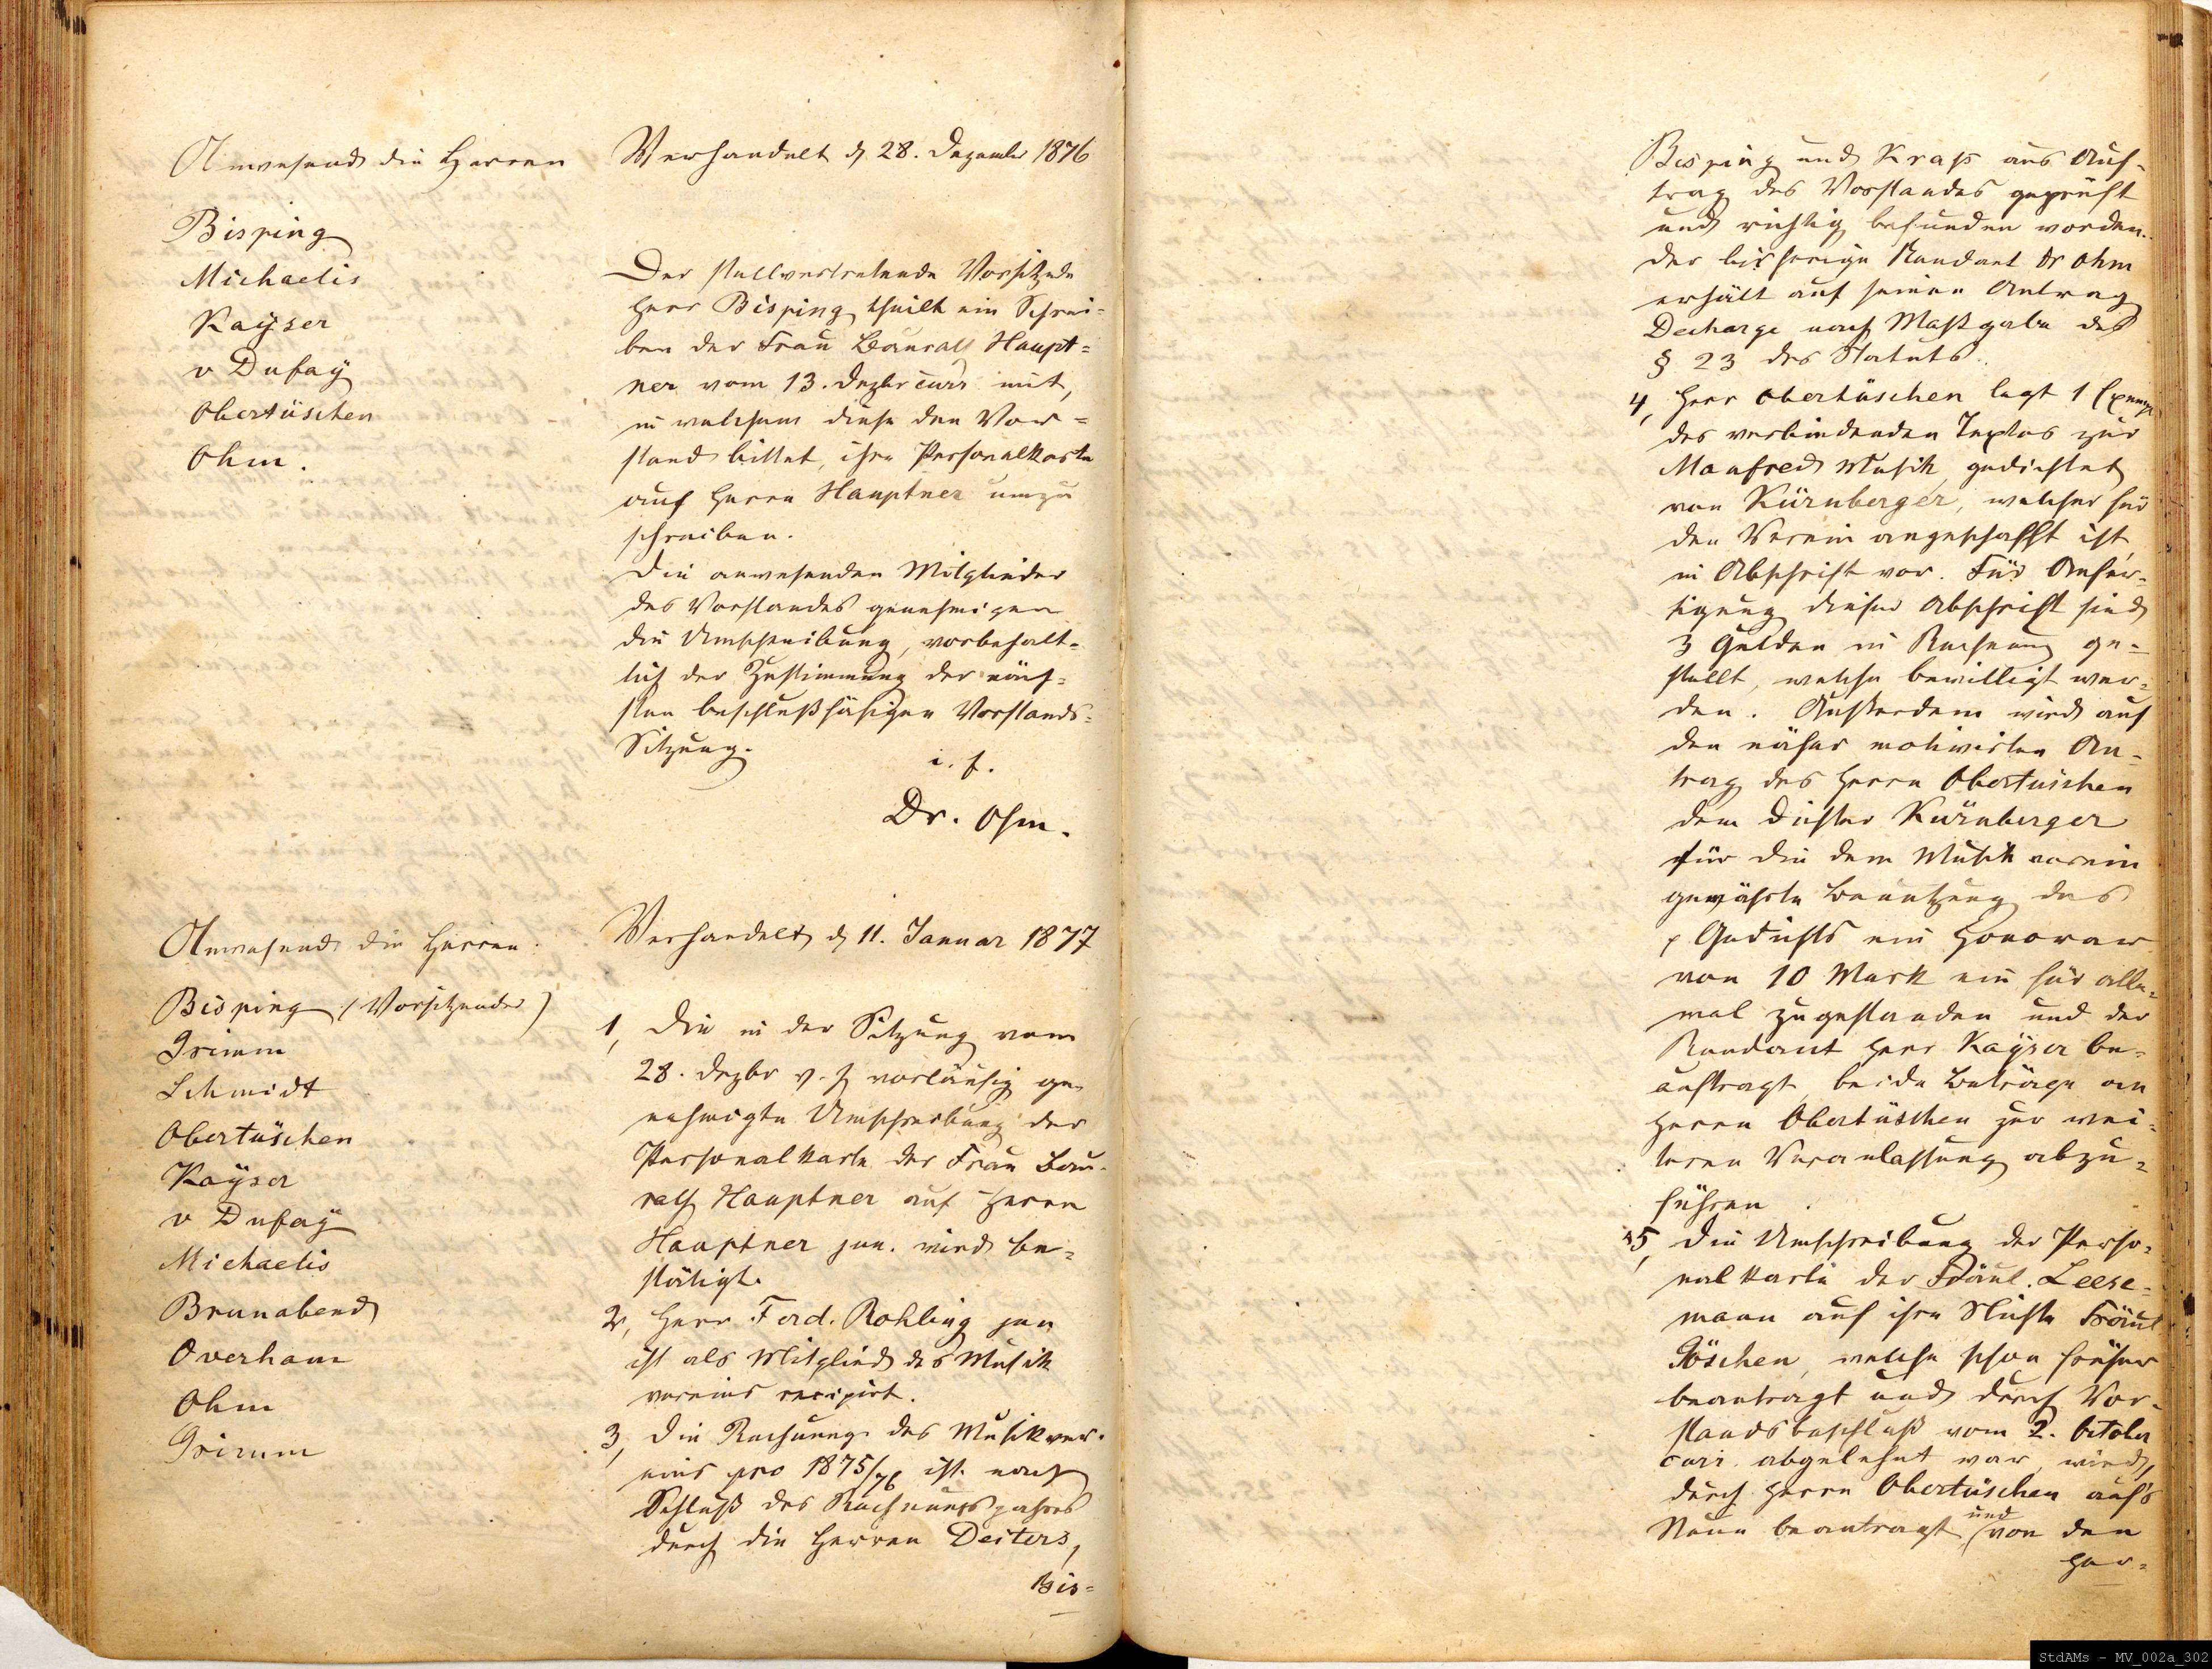 Anwesend die Herren
Bisping
Michaelis
Kayser
v Dufay
Obertüschen
Ohm.
Verhandelt d 28. Dezember 1876
Der stellvertretende Vorsitzende
Herr Bisping theilt ein Schrei-
ben der Frau Baurath Haupt=
ner vom 13. Dezbr curr. mit,
in welchem diese den Vor=
stand bittet, ihre Personalkarte
auf Herrn Hauptner umzu
schreiben.
Die anwesenden Mitglieder
des Vorstandes genehmigen
die Umschreibung, vorbehalt-
lich der Zustimmung der näch=
sten beschlußfähigen Vorstands=
Sitzung.
i. f.
Dr. Ohm.
Anwesend die Herren
Bisping (Vorsitzender)
Grimm
Schmidt
Obertüschen
Kayser
v Dufay
Michaelis
Brunabend
Overham
Ohm
Grimm
Verhandelt d 11. Januar 1877
1, Die in der Sitzung vom
28. Dezbr v. J. vorläufig ge-
nehmigte Umschreibung der
Personalkarte der Frau Bau-
rath Hauptner auf Herrn
Hauptner jun. wird be=
stätigt.
2, Herr Ferd. Rohling jun
ist als Mitglied des Musik
vereins recipirt.
3, Die Rechnung des Musikver-
eins pro 1875/76 ist nach
Schluß des Rechnungsjahres
durch die Herren Deiters,
Bis=
Bisping und Krass aus Auf-
trag des Vorstandes geprüft
und richtig befunden worden.
Der bisherige Rendant Dr Ohm
erhält auf seinen Antrag
Decharge nach Maßgabe des
§ 23 des Statuts.
4, Herr Obertüschen legt 1 Exempl
des verbindenden Textes zur
Manfred Musik, gedichtet
von Kürnberger, welcher für
den Verein angeschafft ist,
in Abschrift vor. Für Anfer-
tigung dieser Abschrift sind
3 Gulden in Rechnung ge-
stellt, welche bewilligt wer-
den. Außerdem wird auf
den näher motivirten An-
trag des Herrn Obertüschen
dem Dichter Kürnberger
für die dem Musikverein
gewährte Benutzung des
Gedichts ein Honorar
von 10 Mark ein für alle-
mal zugestanden und der
Rendant Herr Kayser be-
auftragt beide Beträge an
Herrn Obertüschen zur wei-
teren Veranlassung abzu-
führen.
5, Die Umschreibung der Perso-
nalkarte der Fräul. Leese-
mann auf ihre Nichte Fräul
Göschen, welche schon früher
beantragt und durch Vor-
standsbeschluß vom 2. October
curr. abgelehnt war, wird,
durch Herrn Obertüschen auf's
Neue beantragt und von den
Her=
StdAMs - MV_002a_302